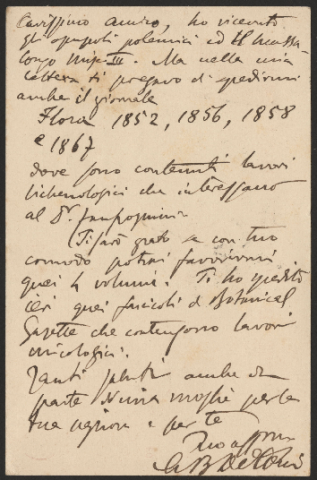 Carissimo amico, ho ricevuto
gli opuscoli polemici ed il Massa-
longo Misc. III. Ma nella mia
lettera ti pregavo di spedirmi
anche il giornale
Flora 1852, 1856, 1858
e 1867
dove sono contenuti lavori
lichenologici che interessano
al Dr.
(Ti sarò grato se con tuo
comodo potrai favorirmi
quei 4 volumi. Ti ho spedito
ieri quei fascicoli di Botanical
Gazette che contengono lavori
micologici.
Tanti saluti anche da
parte di mia moglie per la
tua signora e per te
Tuo aff.mo
G B De Toni